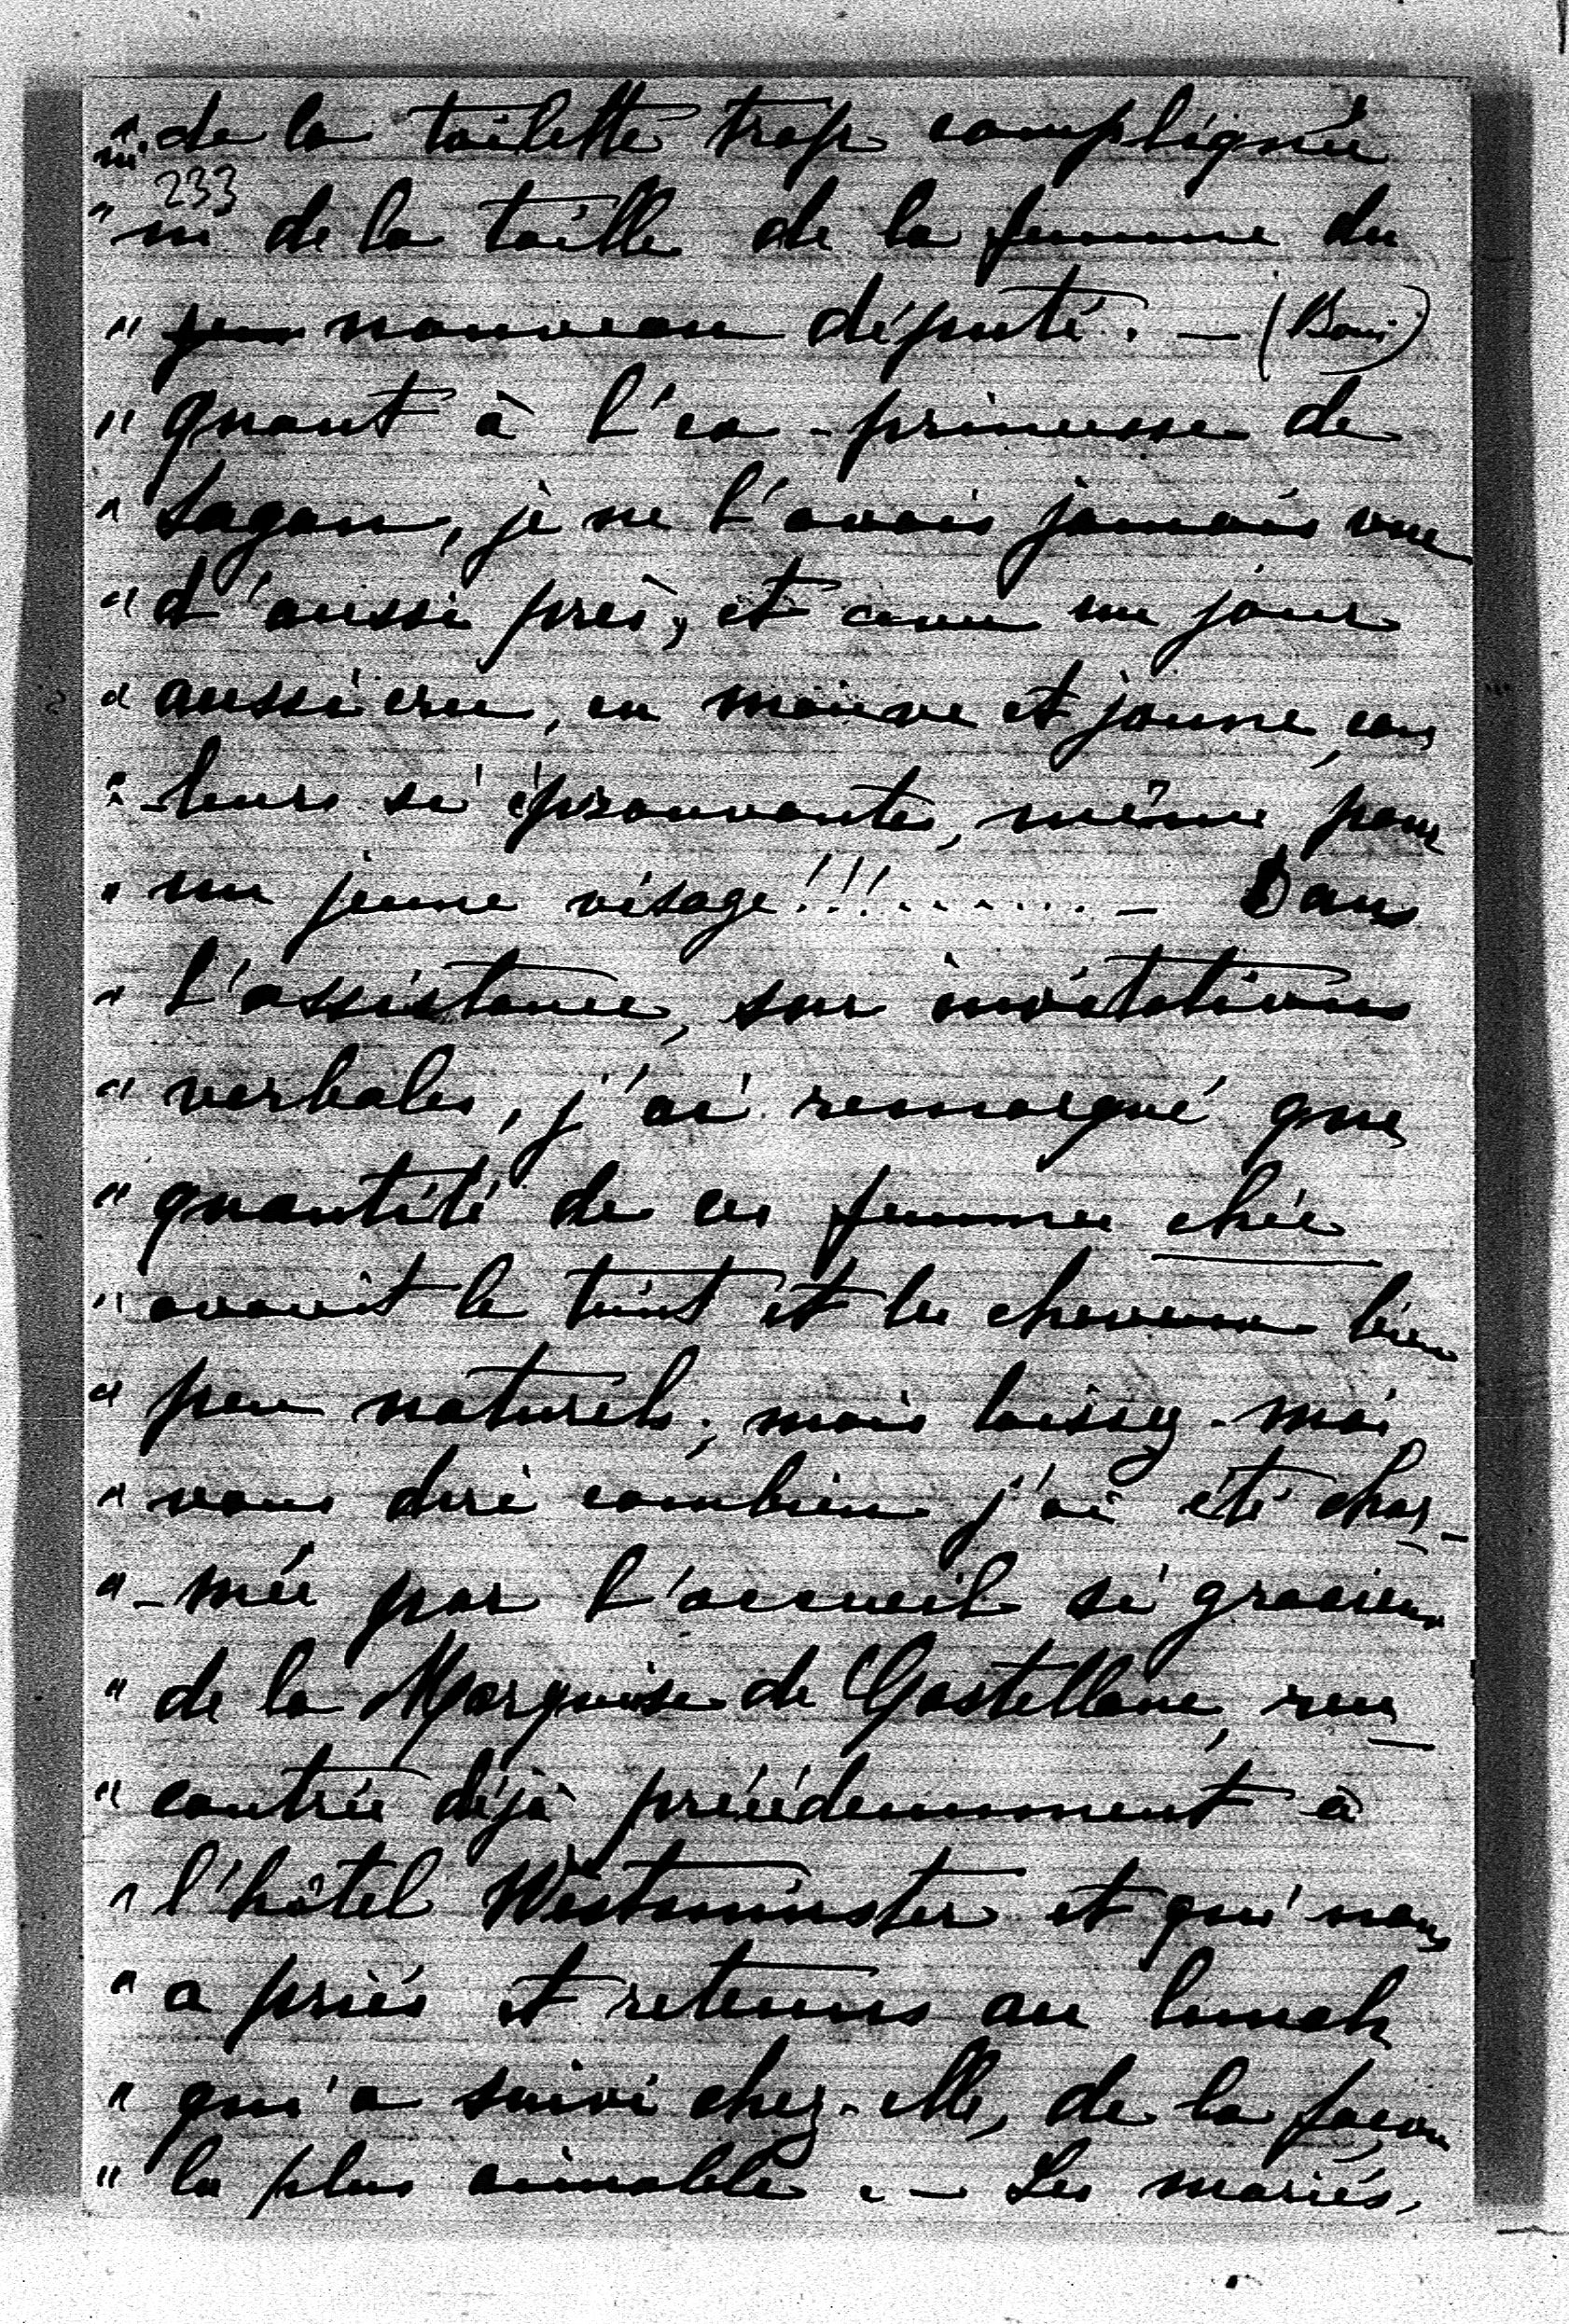 " ni de la toilette trop compliquée
233
" ni de la taille de la femme du
" nouveau député. — (Boni)
" quant à l'ex-princesse de
" Sagan, je ne l'avais jamais vue
" d'aussi près, et avec un jour
" aussi cru, en mauve et jaune, cou
" -leurs si éprouvantes, même pour
" un jeune visage!!!........ — Dans
" l'assistance, sur invitations
" verbales, j'ai remarqué que
" quantité de ces femmes chic
" avait le teint et les cheveux bien
" peu naturels; mais laissez-moi
" vous dire combien j'ai été char-
" -mée par l'accueil si gracieux
" de la Marquise de Castellane, ren-
" contrée déjà précédemment à
" l'hôtel Westminster et qui nous
" a priés et retenus au lunch
" qui a suivi chez-elle, de la façon
" la plus aimable. — Les mariés,